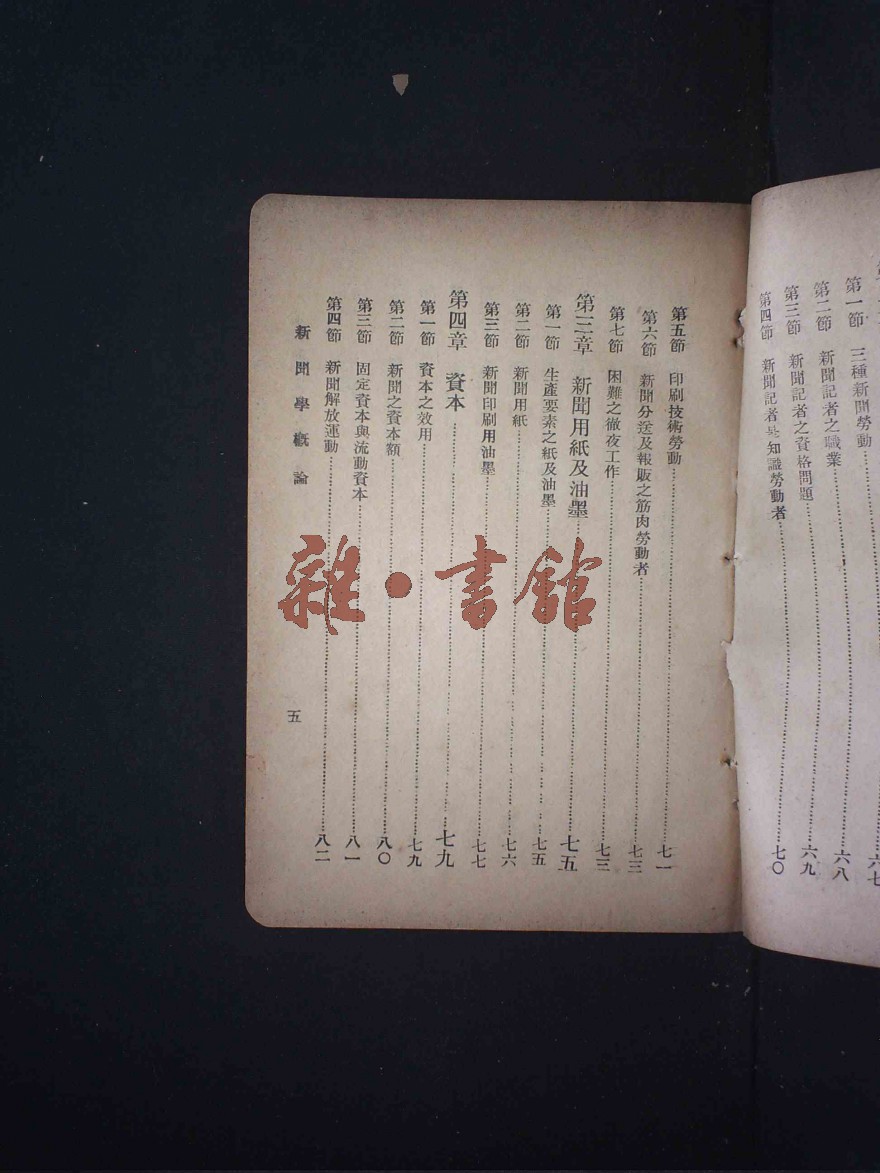 第一節 三種新聞勞動……六七
第二節 新聞記者之職業……六八
第三節 新聞記者之資格問題……六九
第四節 新聞記者是知識勞動者……七〇
第五節 印刷技術勞動……七一
第六節 新聞分送及報販之筋肉勞動者……七三
第七節 困難之徹夜工作……七三
第三章 新聞用紙及油墨……七五
第一節 生產要素之紙及油墨……七五
第二節 新聞用紙……七六
第三節 新聞印刷用油墨……七七
第四章 資本……七九
第一節 資本之效用……七九
第二節 新聞之資本額……八〇
第三節 固定資本與流動資本……八一
第四節 新聞解放運動……八二
新聞學概論
五
雜·書館